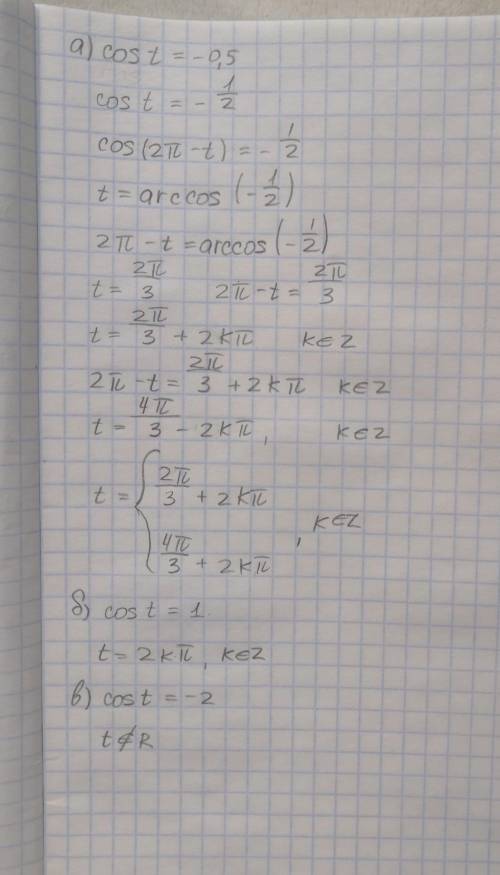 а) cos t = -0,5
cos t = - 1/2
cos(2π - t) = - 1/2
t = arccos (- 1/2)
2π - t = arccos (- 1/2)
t = 2π/3   2π - t = 2π/3
t = 2π/3 + 2kπ   k∈Z
2π - t = 2π/3 + 2kπ   k∈Z
t = 4π/3 - 2kπ,   k∈Z
t = { 2π/3 + 2kπ
4π/3 + 2kπ , k∈Z
б) cos t = 1
t = 2kπ, k∈Z
в) cos t = -2
t ∉ R